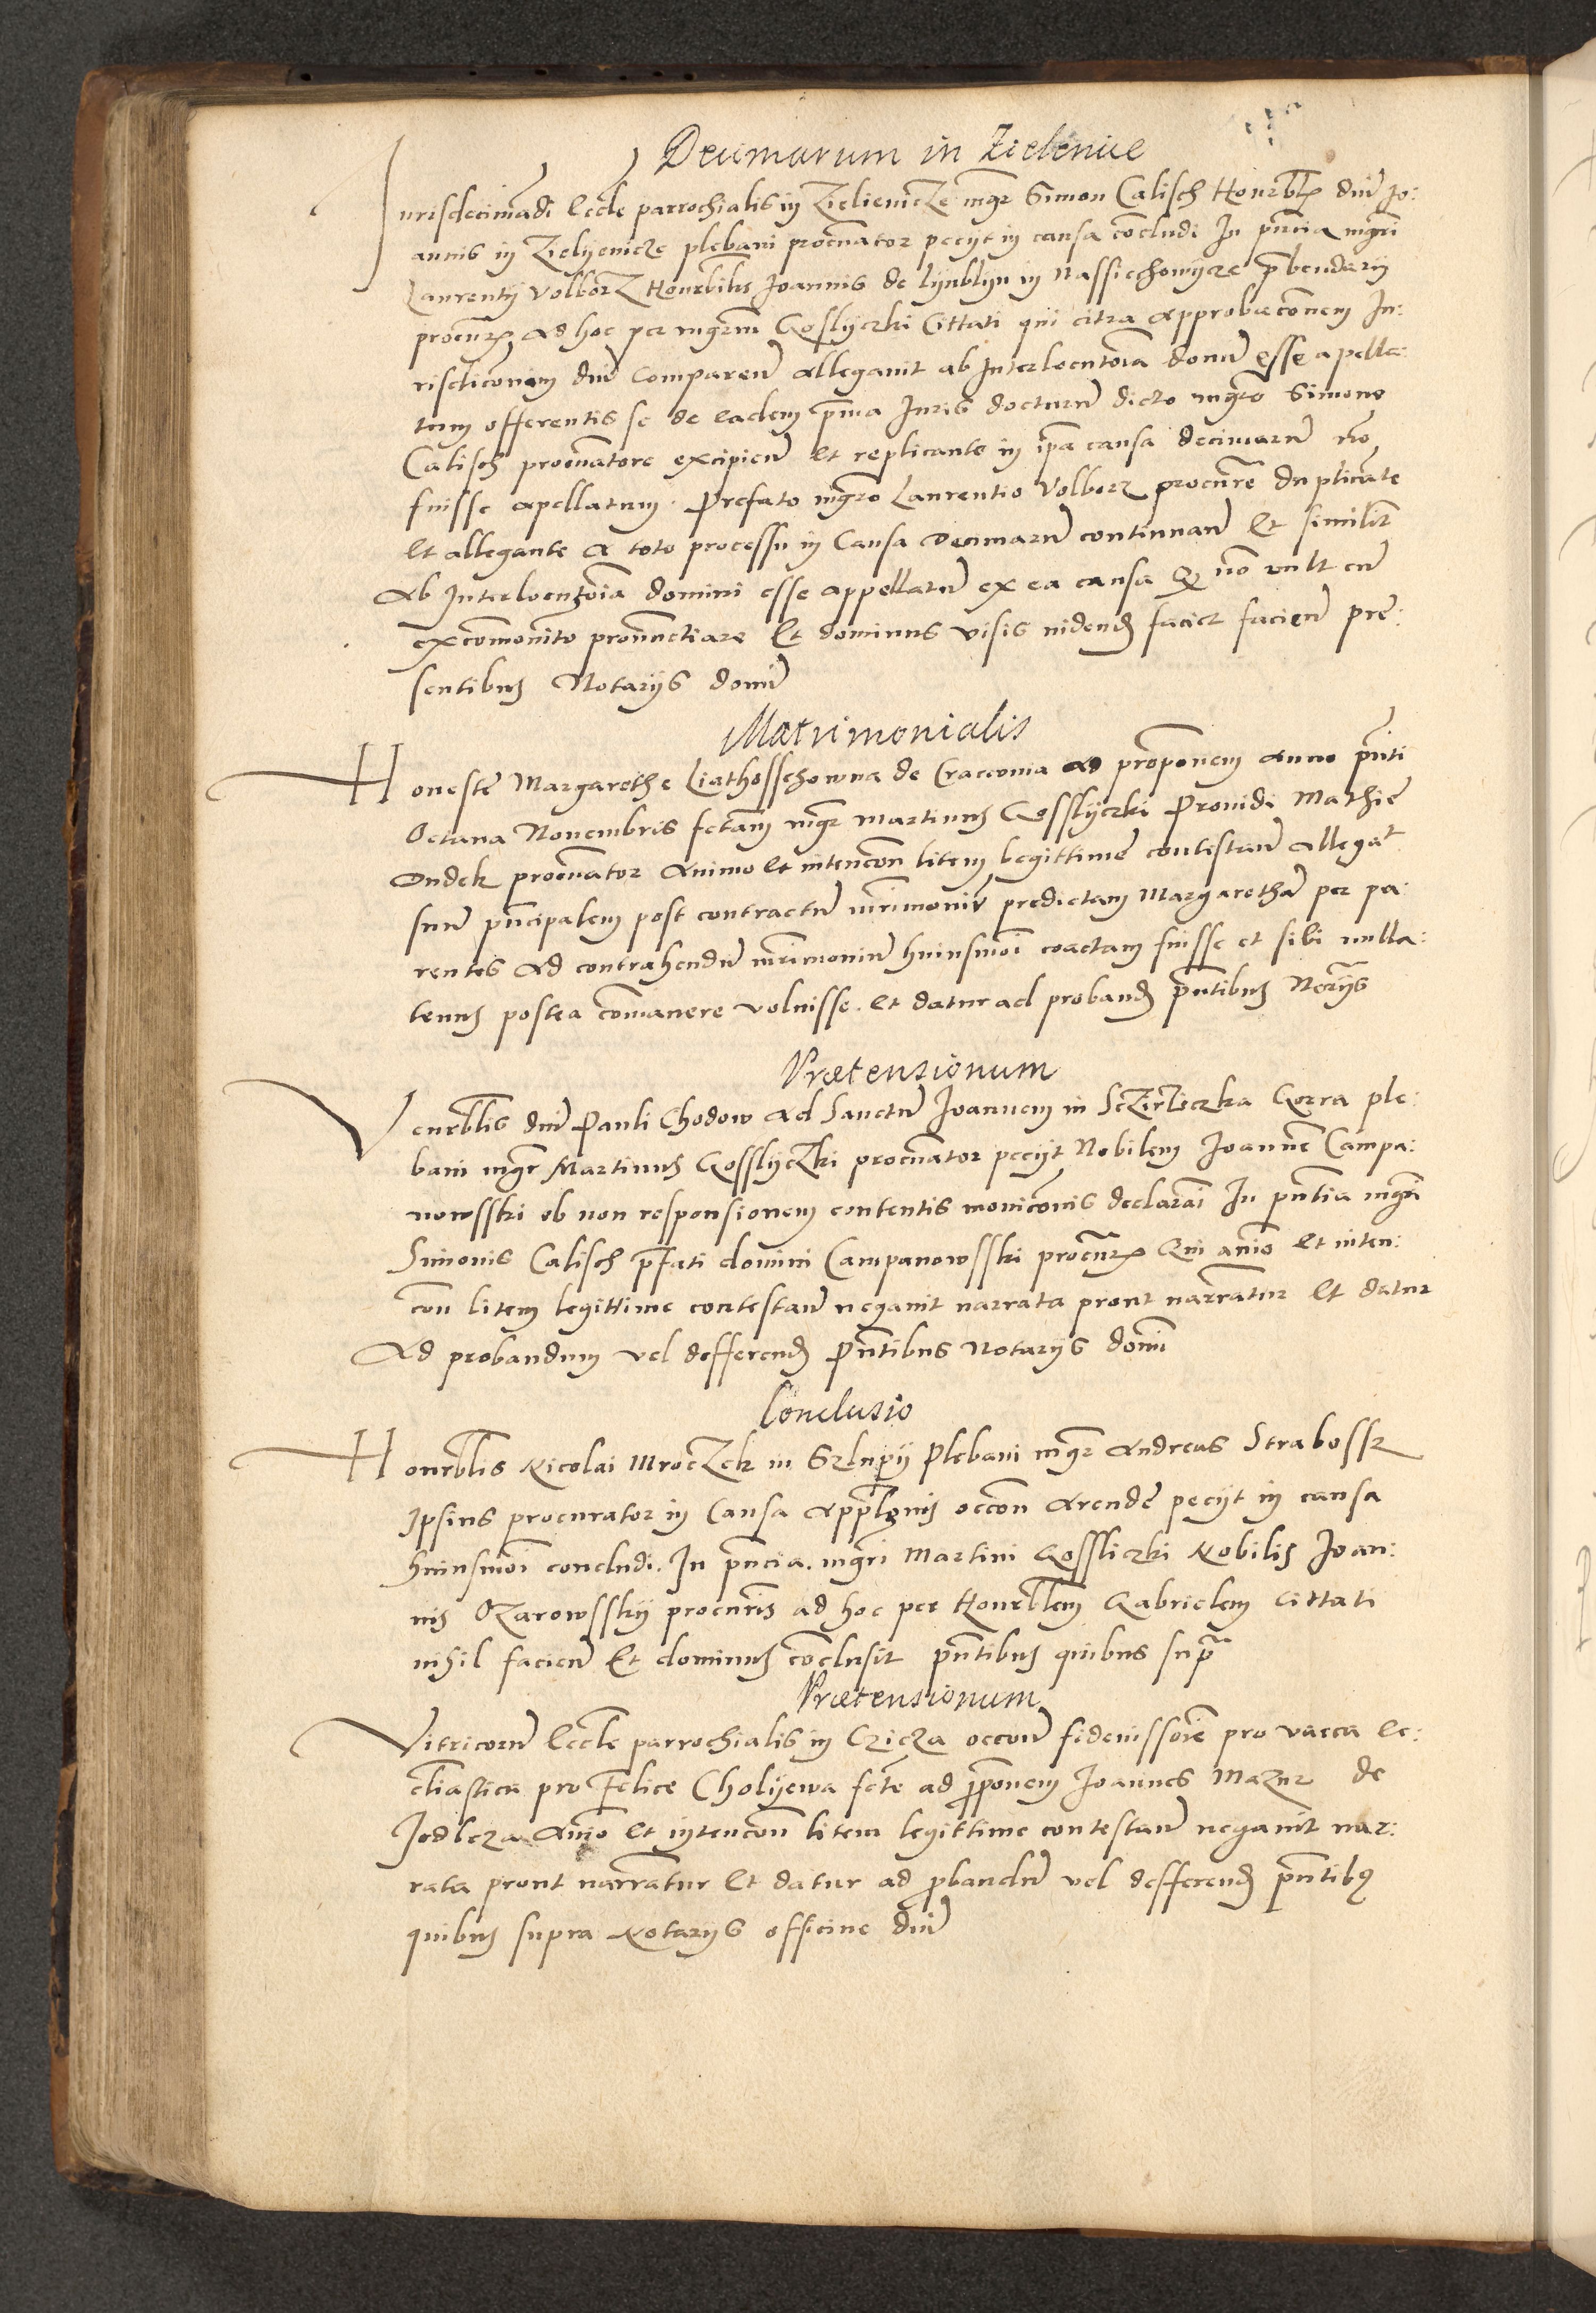 Decimarum in Zielenice
Jurisdecimādi Eccle parrochialis in ZielieniczE mgr Simon Calisch Honrblis dni Jo:
annis in Zielyenicze plebani procuator peciit in causa cōcludi In pn̄cia mgri
Laurentij Volborz Honrbilis Joannis de lynblyn in Nassiechowycze p̄bendarij
procur̄ ad hoc per mgrm Goslyczki Cittati qui citra approbacōnem Ju:
risdicōnem dni comparen̄ allegauit ab Interlocutoria domin̄ esse apella:
tum offerentis se de eadem prima Juris docturum dicto mgro Simone
Calisch procuatore excipien̄ et replicante in ip̄a causa decimarum nō
fuisse apellatum. Prefato mgro Laurentio Volborz procur̄e duplicāte
Et allegante a toto processu in Causa Decimarum continuan̄ Et similir̄
Ab Interlocutoria domini esse appellatum ex ea causa Q̄ nō vult cum
excōmonito pronunctiare Et dominus visis uidend̄ faciet facien̄ pre:
sentibus Notarijs domini
Matrimonialis
Honeste Margarethe Liathosschowna de Craccouia ad proponem anno pn̄ti
Octaua Nouembris fctam mgr Martinus Gosslyczki Prouidi Mathie
Ondek procuator Animo Et intencon litem legittime contestan̄ allegat
suum pn̄cipalem post contractum mr̄imoniū predictam Margaretham per pa:
rentes Ad contrahendum mr̄imonium huiusmōi coactam fuisse et sibi nulla:
tenus postea cōmanere voluisse. Et datur ad proband̄ pn̄tibus Notrijs
Prætensionum
Venrblis dni Pauli Chodow Ad Sanctum Joannem in SchirliczKa Gorra ple:
bani mgr Martinus GosslyczKi procuator peciit Nobilem Joannem Campa:
nowsski ob non responsionem contentis moniconis declarari In pn̄tia mgri
Simonis Calisch p̄fati domini Campanowsski procur̄ Qui animo Et inten:
con litem legittime contestan̄ negauit narrata prout narrātur Et datur
Ad probandum vel defferend̄ Pn̄tibus Notarijs domini
Conclusio
Honrblis Nicolai MroczeK in Szlupij Plebani mgr Andreas Strabossz
Ipsius procurator in Causa app̄lonis occon Arende peciit in causa
huiusmōi concludi. In pn̄cia. mgri Martini Gossliczki Nobilis Joan:
nis Ozarowsskij procuris ad hoc per Honrblem Gabrielem Cittati
nihil facien̄ Et dominus cōclusit pn̄tibus quibus supra
Prætensionum
Vitricorum Eccle parrochialis in Czicza occon̄ fideiussorie pro vacca Ec:
cliastica pro Felice Cholyewa fcte ad proponem Joannes Mazur de
Jedlcza Animo Et intencon litem legittime contestan̄ negauit nar:
rata prout narrātur Et datur ad probandum vel defferend̄ pn̄tibus
quibus supra Notarijs officine dni